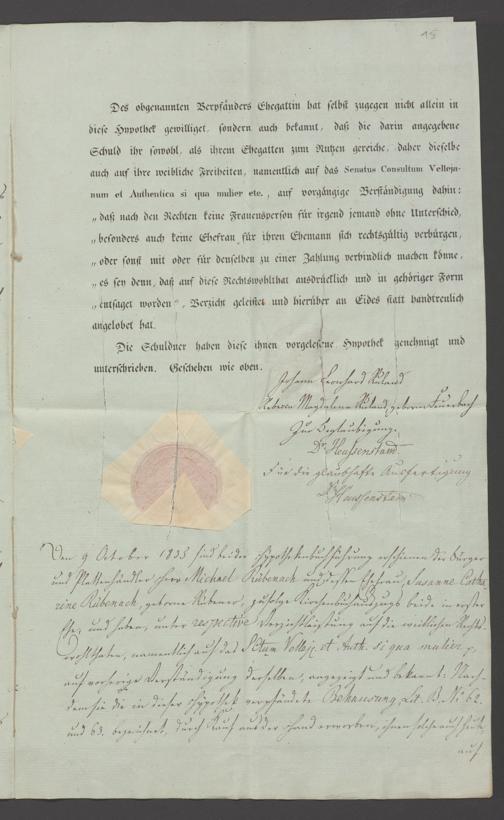 15
Des obgenannten Verpfänders Ehegattin hat selbst zugegen nicht allein in
diese Hypothek gewilliget, sondern auch bekannt, daß die darin angegebene
Schuld ihr sowohl, als ihrem Ehegatten zum Nutzen gereiche, daher dieselbe
auch auf ihre weibliche Freiheiten, namentlich auf das Senatus Consultum Velleja-
num et Authentica si qua mulier etc., auf vorgängige Verständigung dahin:
„daß nach den Rechten keine Frauensperson für irgend jemand ohne Unterschied,
„besonders auch keine Ehefrau für ihren Ehemann sich rechtsgültig verbürgen,
„oder sonst mit oder für denselben zu einer Zahlung verbindlich machen könne,
„es sey denn, daß auf diese Rechtswohlthat ausdrücklich und in gehöriger Form
„entsaget worden", Verzicht geleistet und hierüber an Eides statt handtreulich
angelobet hat.
Die Schuldner haben diese ihnen vorgelesene Hypothek genehmigt und
unterschrieben. Geschehen wie oben.
Johann Leonhard Ruland
Rebecca Magdalena Ruland, geborne Feuerbach
Zur Beglaubigung,
Dr. Heussenstamm
Für die glaubhafte Ausfertigung
Dr. Heussenstamm
Den 9 October 1833 sind bei der Hypothekenbuchführung erschienen der Bürger
und Plattenhändler Herr Michael Rübenach und dessen Ehefrau, Susanne Catha
rine Rübenach, geborne, zufolge Kirchenbuchauszugs beide in erster
Ehe, und haben, unter respective Verzichtleistung auf die weiblichen Rechts-
wohlthaten, namentlich auf das SCtum Vellej. et Auth. si qua mulier p.
auf vorherige Verständigung derselben, angezeigt und bekannt: Nach-
dem sie die in dieser Hypothek verpfändete Behausung, Lit. B. No 62.
und 63. bezeichnet, durch Kauf aus der Hand erworben, ihnen solche auch heute
auf